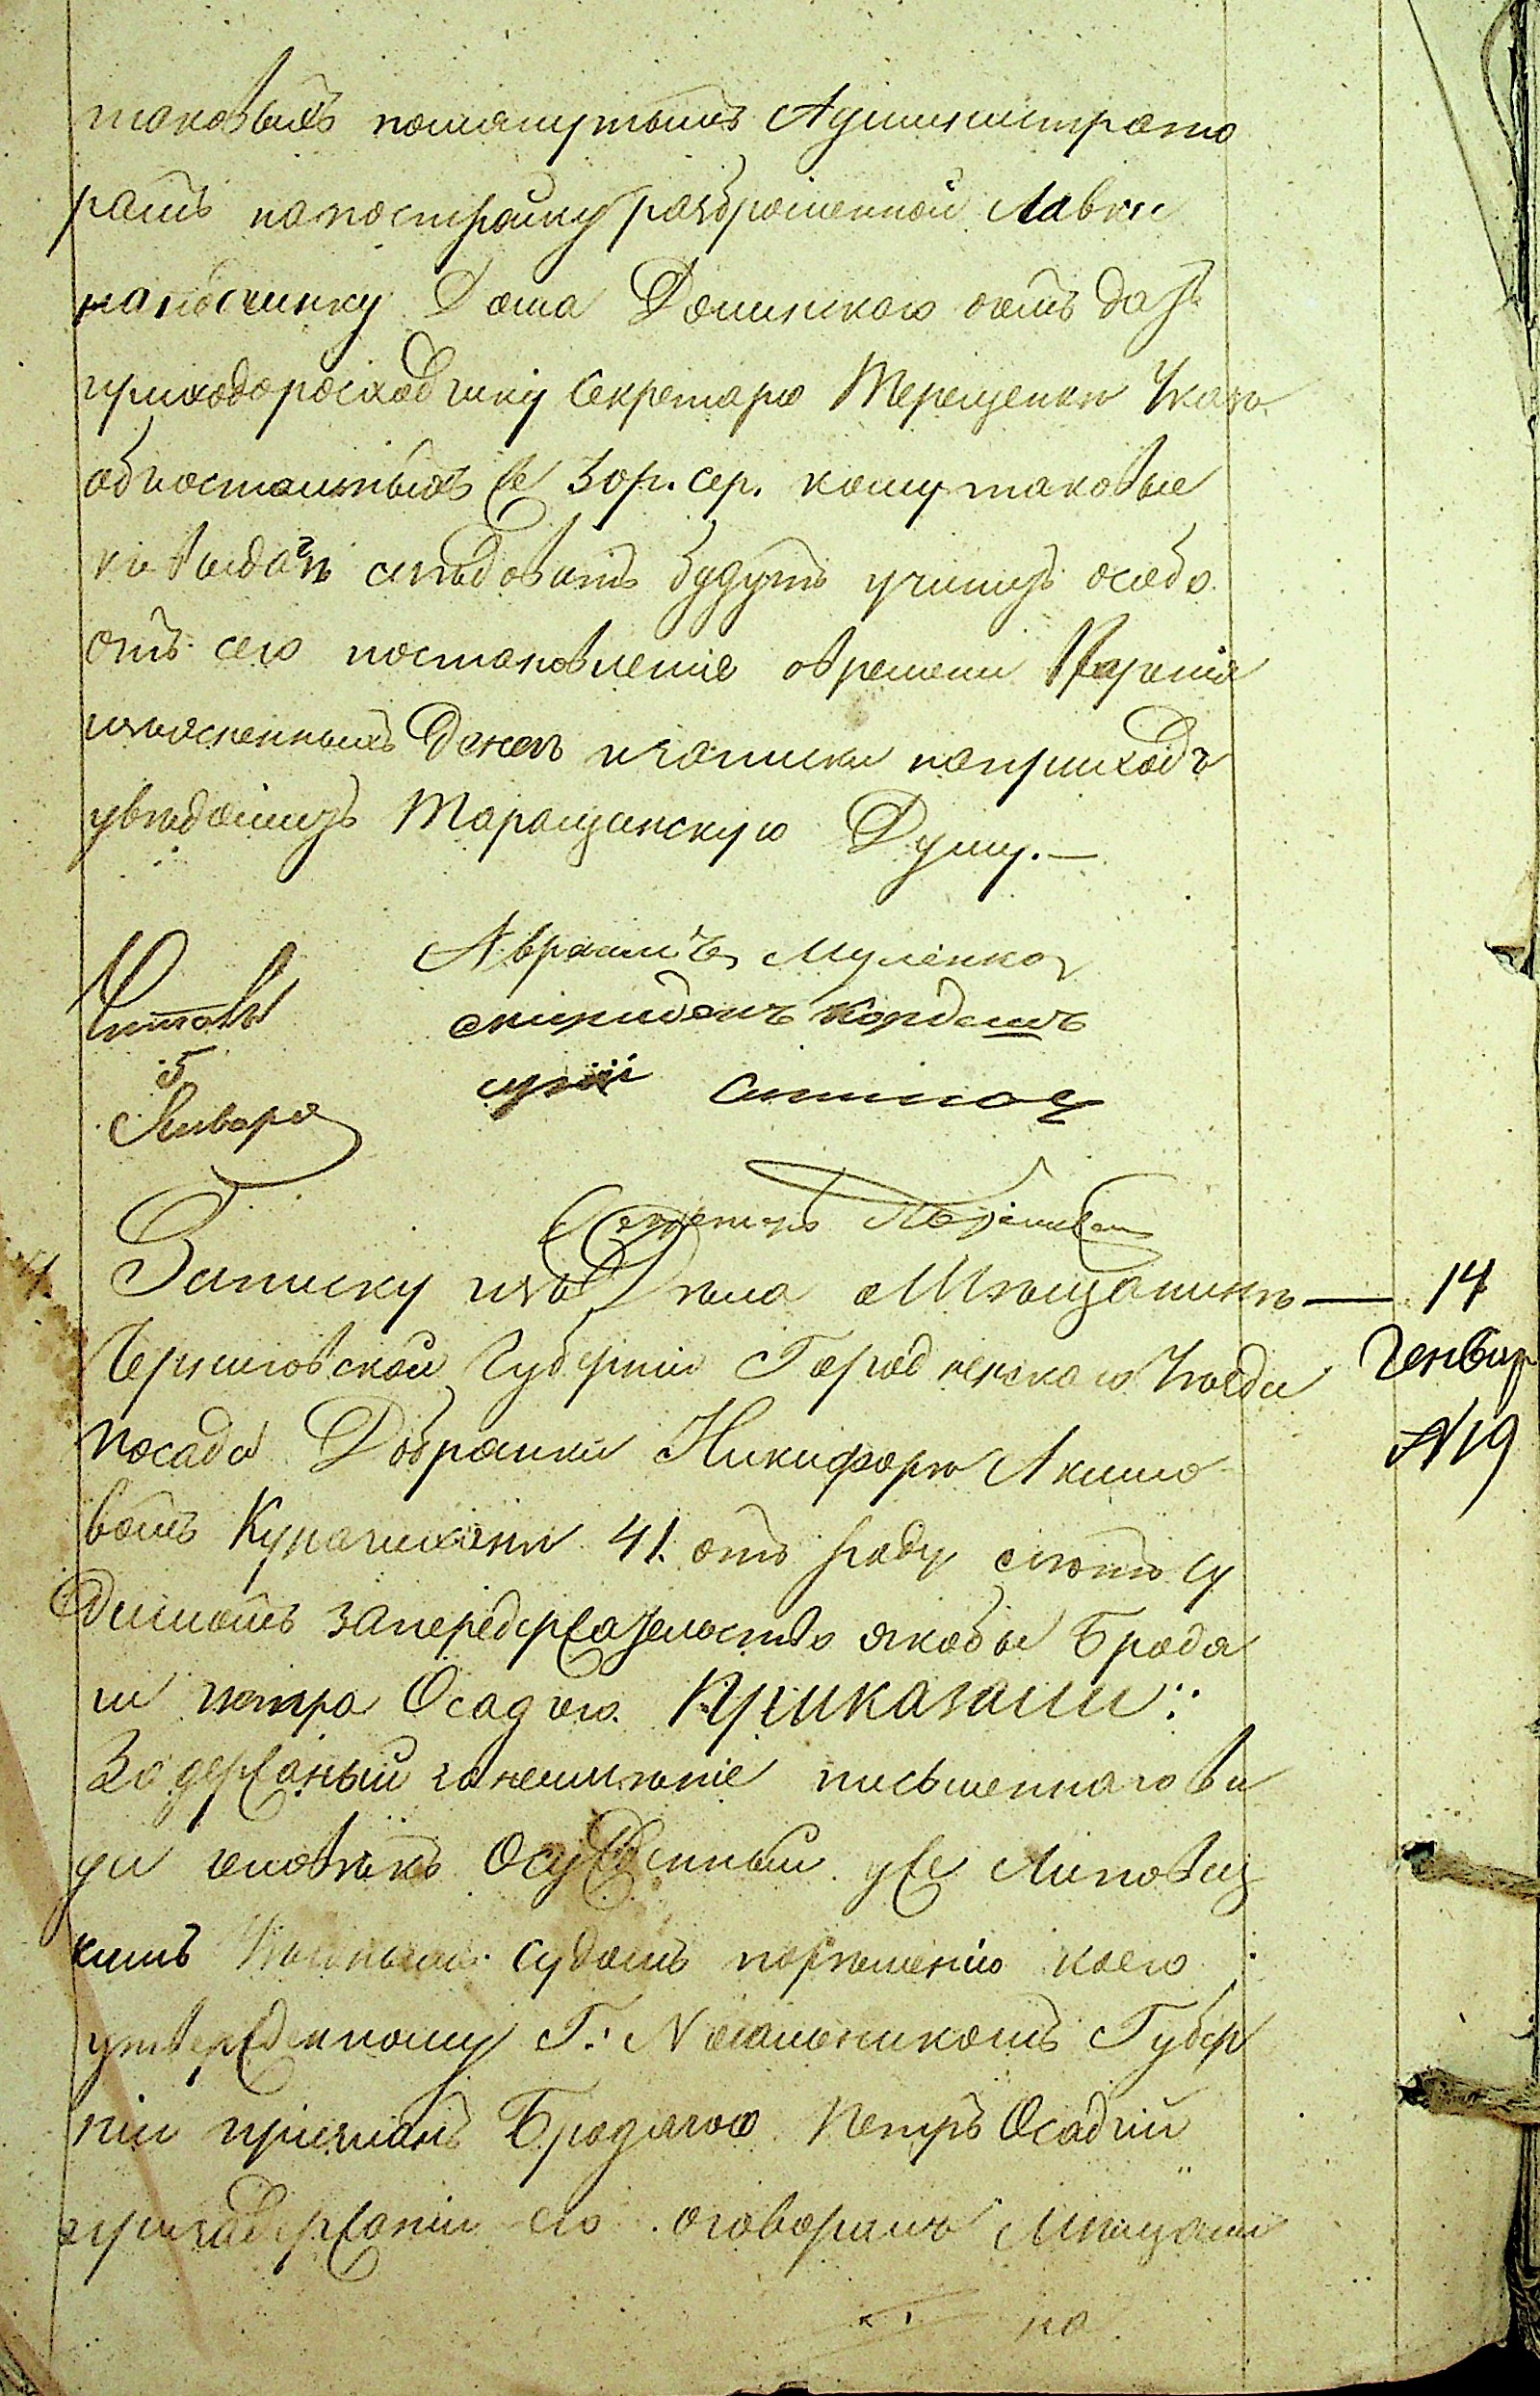 таковыхъ помянутымъ Администрато
ромъ на постройку разброшенной Лавки
на починку Дома Долинскаго дать
приходорасходчику Секретарю Терещенки Указъ
объ остальныхъ же 30 р. сер. кому таковые
къ выдачѣ слѣдовать будутъ учинить особо
отъ сего постановленіе о времени
изъясненныхъ денегъ и записки на приходъ
увѣдомить Таращанскую Думу. —
Аврамъ Муленко
Читовъ спиридонъ Кордашъ
5
Января
Секретарь Терещенко
4. Записку изъ Дѣла о Мѣщанинѣ — 14
Черниговской Губерніи Городненскаго Уѣзда Генвар
посада Добрянки Никифорѣ Акимо №19
вомъ 41. отъ роду лѣтъ су
димомъ за передержательство якобы Бродя
ги петра Осадчего. Приказали:
Задержаный за неимѣніе письменнаго ви
да человѣкъ Осужденный уже Липовец
кимъ Уѣзднымъ Судомъ по рѣшенію коего
утвержденному Г. Начальникомъ Губер
ніи признанъ Бродягою Петръ Осадчій
при задержаніи его оговорилъ Мѣщани
на